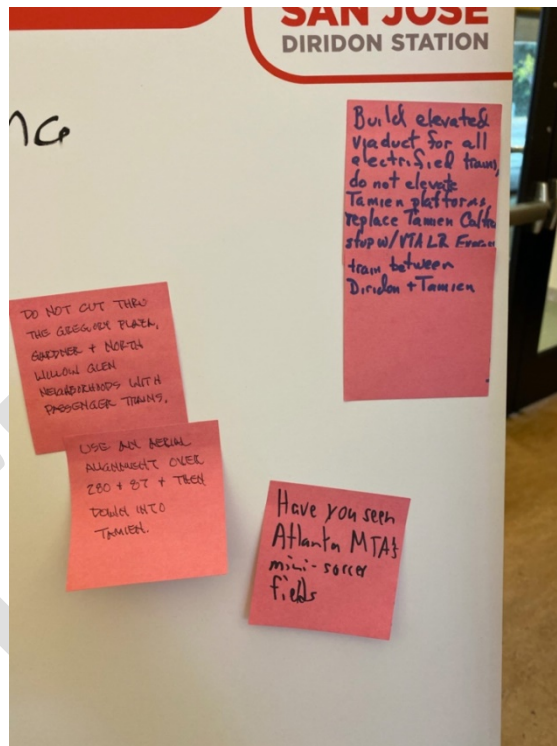 SAN JOSE
DIRIDON STATION
NG
Build elevated
viaduct for all
electrified trains,
do not elevate
Tamien platforms,
replace Tamien Caltra
stop w/VTA LR
train between
Diridon + Tamien
DO NOT CUT THRU
THE GREGORY PLAZA,
GARDNER + NORTH
WILLOW GLEN
NEIGHBORHOODS WITH
PASSENGER TRAINS.
USE AN AERIAL
ALIGNMENT OVER
280 + 87 + THEN
DOWN INTO
TAMIEN.
Have you seen
Atlanta MTA's
mini-soccer
fields